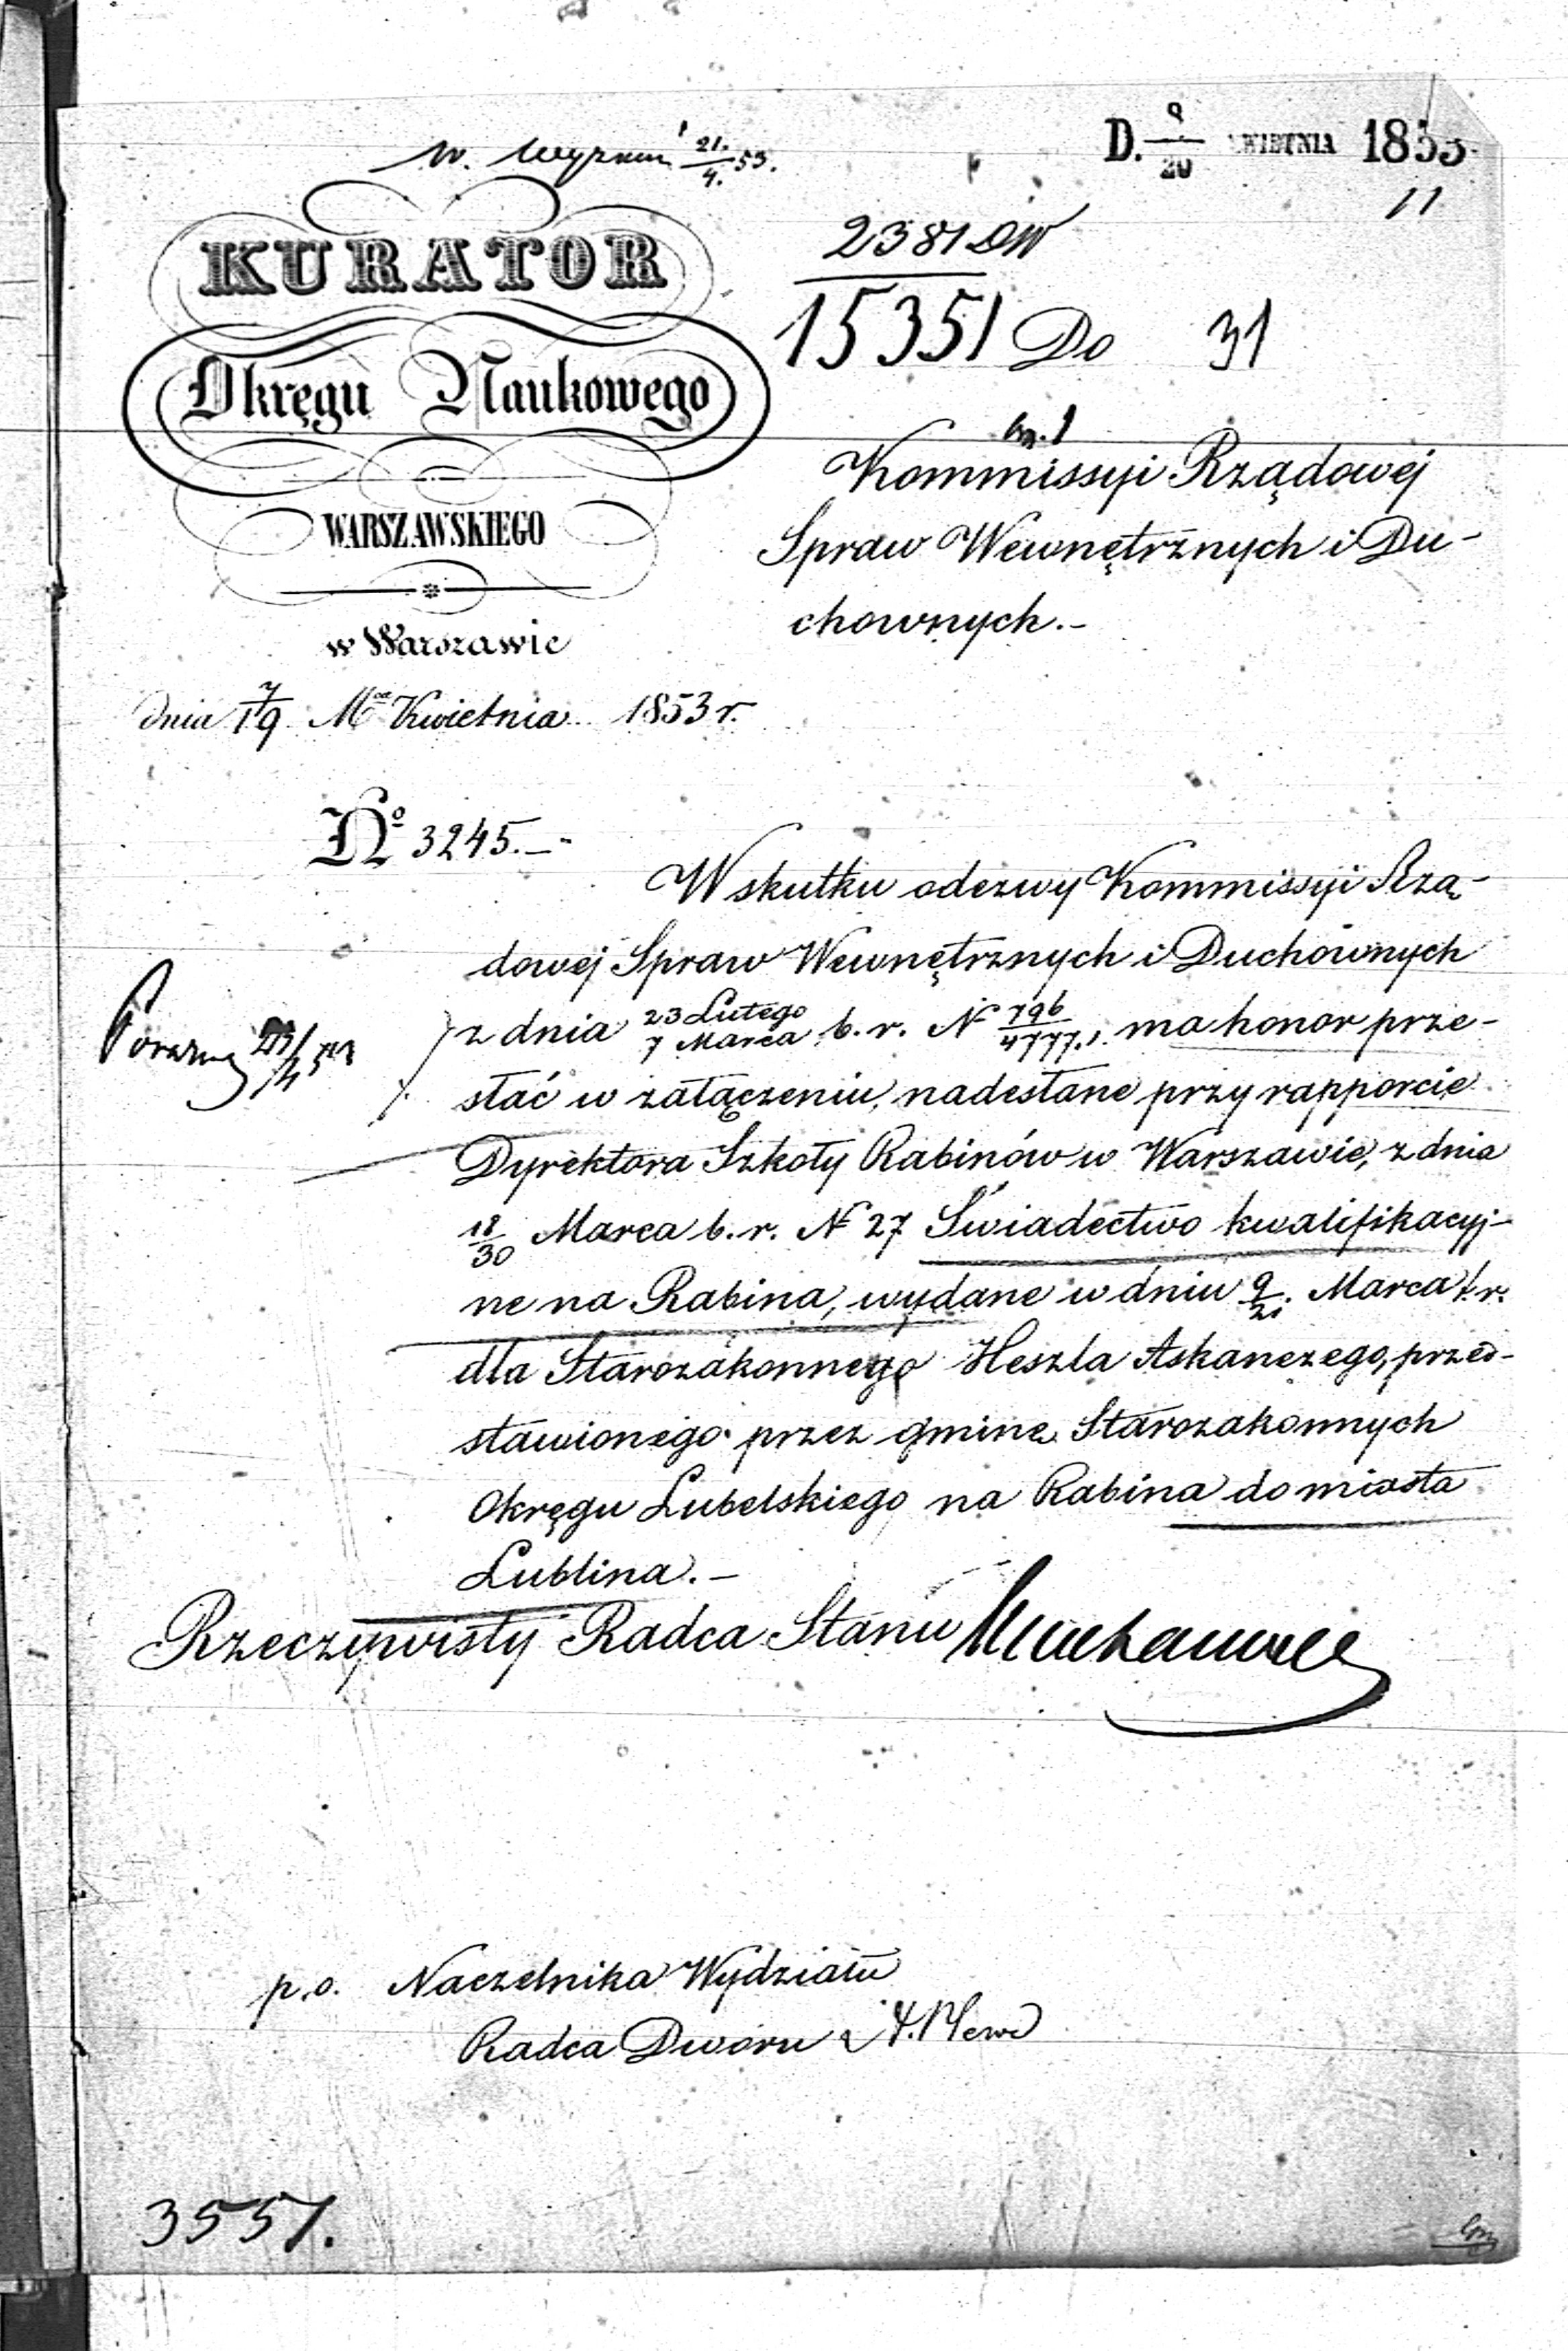 W. 21./4. 53.
D. 8/20 KWIETNIA 1853
11
KURATOR
Okręgu Naukowego
WARSZAWSKIEGO
w Warszawie
dnia 7/19 Mca Kwietnia 1853 r.
No 3245.—
2381 DW
15351 Do 31
Kommissyi Rządowej
Spraw Wewnętrznych i Du-
chownych.—
W skutku odezwy Kommissyi Rzą-
dowej Spraw Wewnętrznych i Duchownych
z dnia 23 Lutego/7 Marca b. r. N 796/4777., ma honor prze-
słać w załączeniu, nadesłane przy rapporcie
Dyrektora Szkoły Rabinów w Warszawie, z dnia
18/30 Marca b. r. N 27 Świadectwo kwalifikacyj-
ne na Rabina, wydane w dniu 9/21. Marca b. r.
dla Starozakonnego Heszla Askanezego, przed-
stawionego przez gminę Starozakonnych
Okręgu Lubelskiego na Rabina do miasta
Lublina.—
Rzeczywisty Radca Stanu
p. o. Naczelnika Wydziału
Radca Dworu
3557.